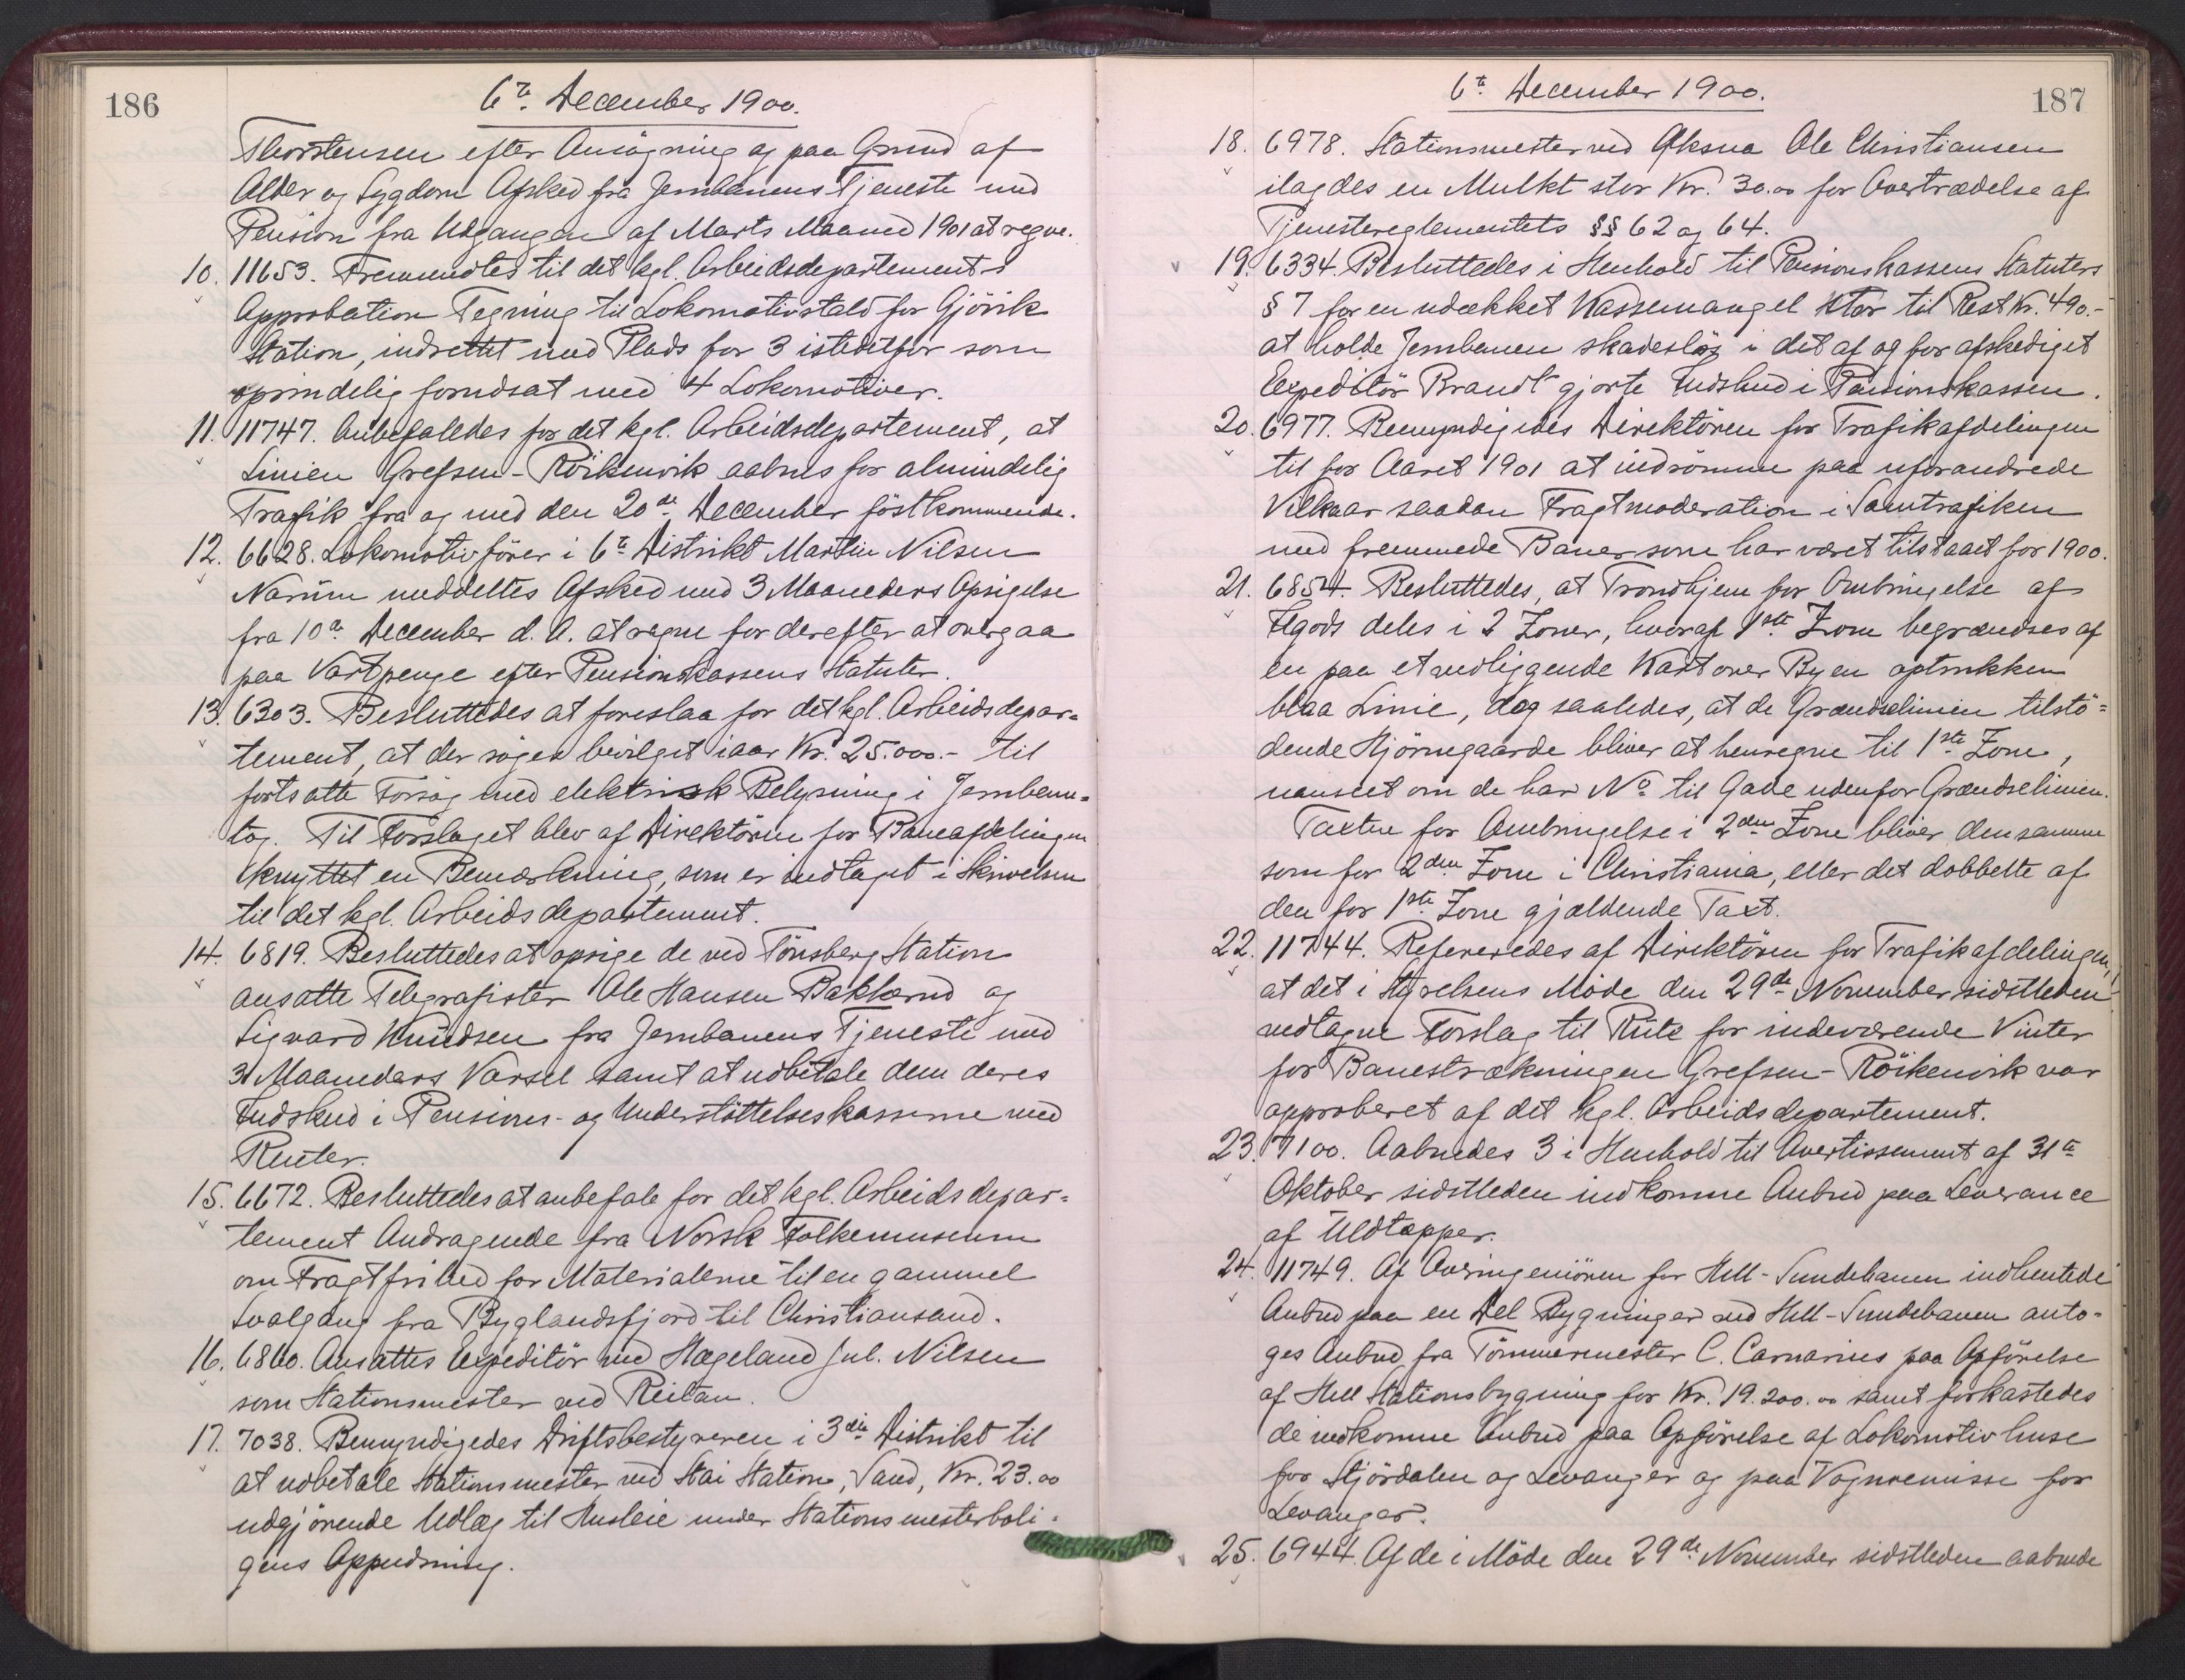 186
6te December 1900.
Thorstensen efter Ansögning og paa Grund af
Alder og Sygdom Afsked fra Jernbanens Tjeneste med
Pension fra Udgangen af Marts Maaned 1901 at regne.
10. 11653. Fremsendtes til det kgl. Arbeidsdepartements
Approbation Tegning til Lokomotivstald for Gjövik
Station, indrettet med Plads for 3 istedetfor som
oprindelig forudsat med 4 Lokomotiver.
11. 11747. Anbefaledes for det kgl. Arbeidsdepartement, at
Linien Grefsen-Röikenvik aabnes for almindelig
Trafik fra og med den 20de December först kommende.
12. 6628. Lokomotivförer i 6te Distrikt Martin Nilsen
Narum meddeltes Afsked med 3 Maaneders Opsigelse
fra 10de December d. A. at regne for derefter at overgaa
paa Vartpenge efter Pensionskassens Statuter.
13. 6303. Besluttedes at foreslaa for det kgl. Arbeidsdepar=
tement, at der söges bevilget iaar Kr. 25.000.- til
fortsatte Forsög med elektrisk Belysning i Jernbane=
tog. Til Forslaget blev af Direktören for Baneafdelingen
knyttet en Bemærkning, som er indtaget i Skrivelsen
til det kgl. Arbeidsdepartement.
14. 6819. Besluttedes at opsige de ved Tönsberg Station
ansatte Telegrafister Ole Hansen Bakkerud og
Sigvard Knudsen fra Jernbanens Tjeneste med
3 Maaneders Varsel samt at udbetale dem deres
Indskud i Pensions- og Understöttelseskasserne med
Renter.
15. 6672. Besluttedes at anbefale for det kgl. Arbeidsdepar=
tement Andragende fra Norsk Folkemuseum
om Fragtfrihed for Materialerne til en gammel
Svalgang fra Byglandsfjord til Christiansand.
16. 6860. Ansattes Expeditör ved Hægeland Jul. Nilsen
som Stationsmester ved Reitan.
17. 7038. Bemyndigedes Driftsbestyreren i 3die Distrikt til
at udbetale Stationsmester ved Stai Station, Sand, Kr. 23.00
udgjörende Udlæg til Husleie under Stationsmesterboli=
gens Oppudsning.
6te December 1900.
187
18. 6978. Stationsmester ved Oksna Ole Christiansen
ilagdes en Mulkt stor Kr. 30.00 for Overtrædelse af
Tjenestereglementets §§ 62 og 64.
19. 6334. Besluttedes i Henhold til Pensionskassens Statuters
§ 7 for en udækket Kassemangel stor til Rest Kr. 490.-
at holde Jernbanen skadeslös i det af og for afskediget
Expeditör Brandt gjorte Indskud i Pensionskassen.
20. 6977. Bemyndigedes Direktören for Trafikafdelingen
til for Aaret 1901 at indrömme paa uforandrede
Vilkaar saadan Fragtmoderation i Samtrafiken
med fremmede Baner som har været tilstaaet for 1900.
21. 6854. Besluttedes, at Trondhjem for Ombringelse af
Ilgods deles i 2 Zoner, hvoraf 1ste Zone begrændses af
en paa et vedliggende Kart over Byen optrukken
blaa Linie, dog saaledes, at de Grændselinien tilstö=
dende Hjörnegaarde bliver at henregne til 1ste Zone,
uanseet om de har No til Gade udenfor Grændselinien.
Taxten for Ombringelse i 2den Zone bliver den samme
som for 2den Zone i Christiania, eller det dobbelte af
den for 1ste Zone gjældende Taxt.
22. 11744. Refereredes af Direktören for Trafikafdelingen,
at det i Styrelsens Möde den 29de November sidstleden
vedtagne Forslag til Rute for indeværende Vinter
for Banestrækningen Grefsen-Röikenvik var
approberet af det kgl. Arbeidsdepartement.
23. 7100. Aabnedes 3 i Henhold til Avertissement af 31te
Oktober sidstleden indkomne Anbud paa Leverance
af Uldtæpper.
24. 11749. Af Overingeniören for Hell-Sundebanen indhentede
Anbud paa en Del Bygninger ved Hell-Sundebanen anto=
ges Anbud fra Tömmermester C. Carnarius paa Opförelse
af Hell Stationsbygning for Kr. 19.200.00 samt forkastedes
de indkomne Anbud paa Opförelse af Lokomotivhuse
for Stjördalen og Levanger og paa Vognremisse for
Levanger.
25. 6944. Af de i Möde den 29de November sidstleden aabnede